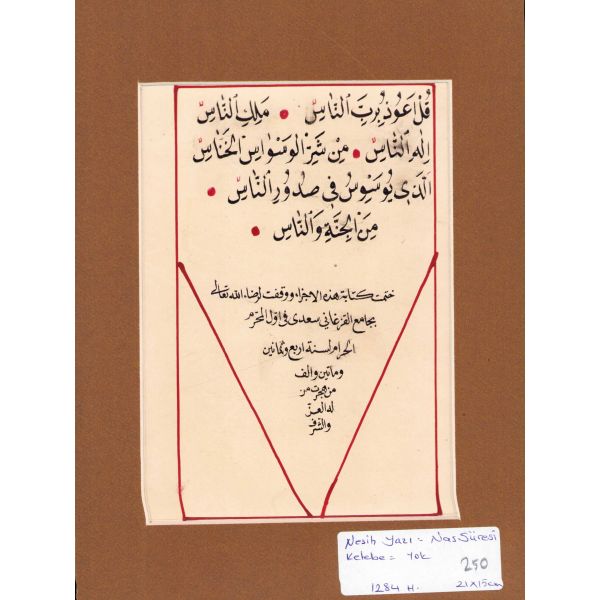 قُلْ اَعُوذُ بِرَبِّ النَّاسِ • مَلِكِ النَّاسِ
اِلٰهِ النَّاسِ • مِنْ شَرِّ الْوَسْوَاسِ الْخَنَّاسِ
اَلَّذِى يُوَسْوِسُ فِى صُدُورِ النَّاسِ •
مِنَ الْجِنَّةِ وَالنَّاسِ •
ختمت كتابة هذه الاجزاء ووقفت لرضاء الله تعالى
بجامع القزغاني سعدى فى اول المحرم
الحرام لسنة اربع وثمانين
وماتين والف
من هجرت من
له العز
والشرف
Nesih Yazı = Nas Sûresi
Ketebe = Yok
250
1284 H. 21x15cm